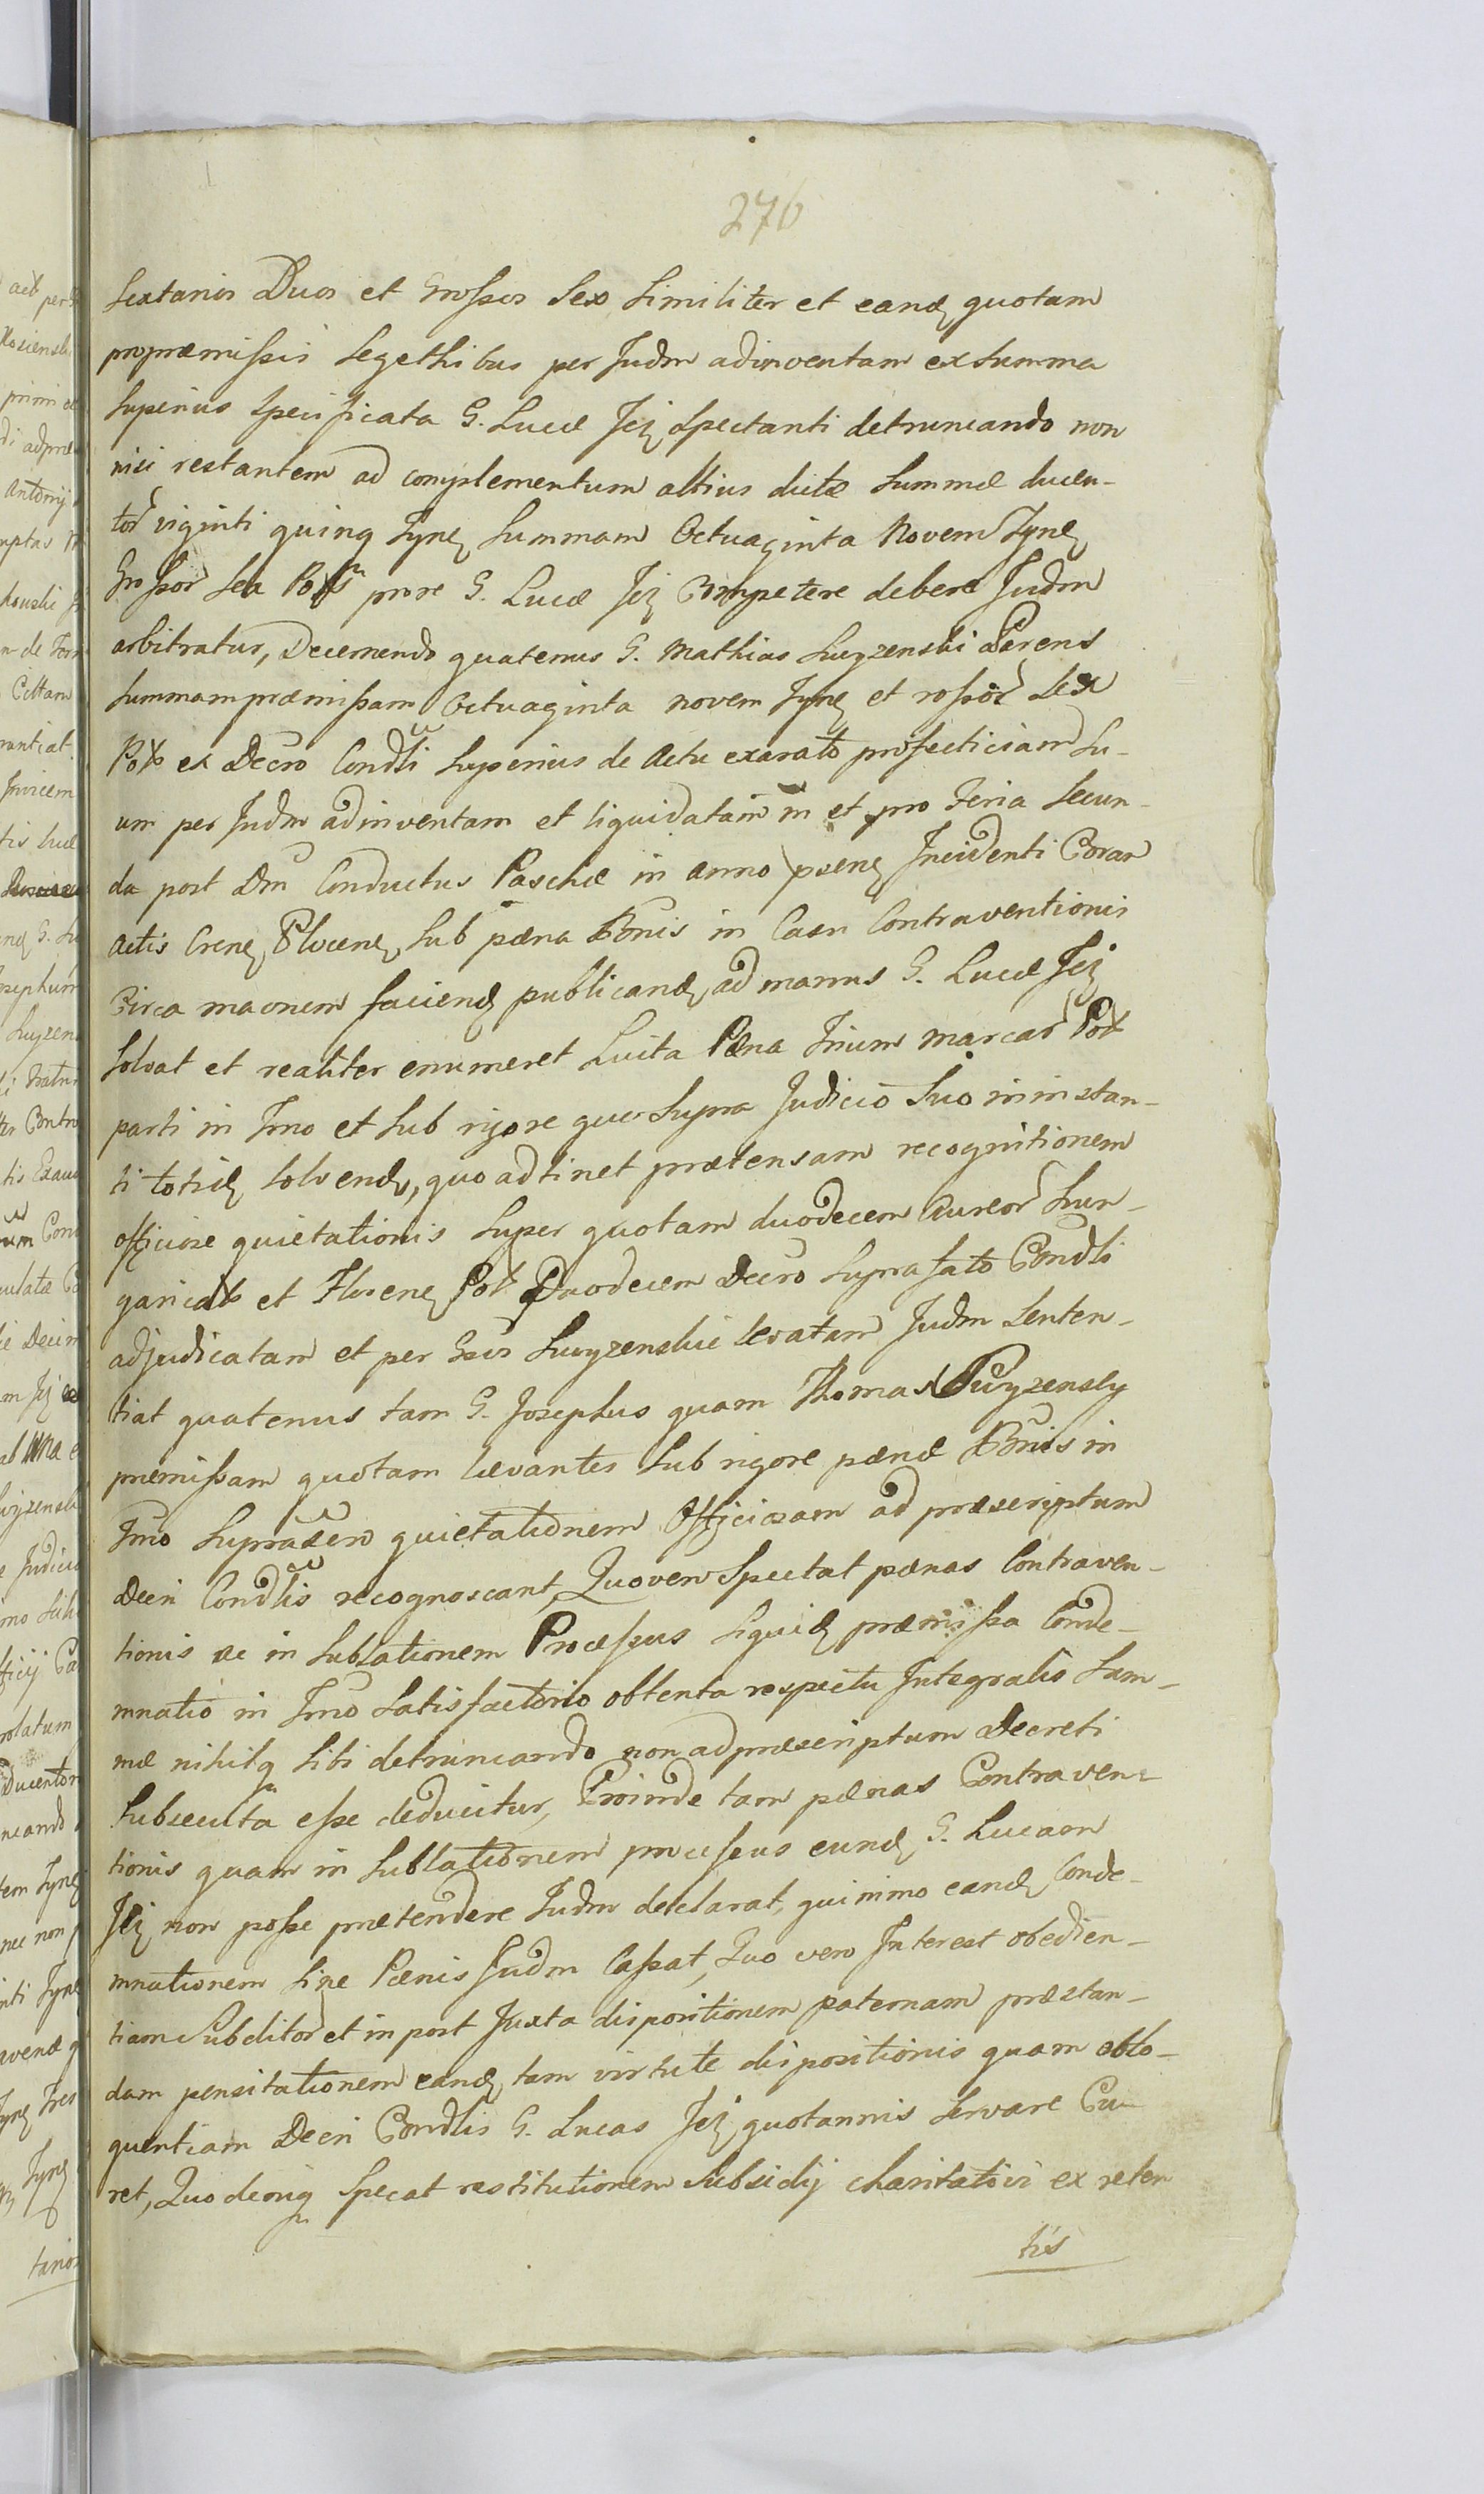 276
sextarios Duos et Grossos Sex Similiter et eand quotam
propræmissis Segethibus per Judm adinventam ex summa
superius specificata G. Lucæ Jej spectanti detruncando non
nisi restantem ad complementum altius dictæ summæ ducen-
tor viginti quinq Tynf summam Octuaginta Novem Tynf
Grossor Sex Pol prore G. Lucæ Jej Competere debere Judm
arbitratur, Decernendo quatenus G. Mathias Suyzenski Parens
summam præmissam Octuaginta novem Tynf et rossor Sex
Pol ex Decro Condli superius de Actu exarato profecticiam su-
am per Judm adinventam et liquidatam in et pro Feria secun-
da post Dm Conductus Paschæ in Anno præsen Incidenti Coram
Actis Cren Plocen, sub pæna Bonis in Casu Contraventionis
Circa maonem faciend publicand, ad manus G. Lucæ Jej
solvat et realiter enumeret Luita Pæna Trium marcar Pol
parti in Trno et sub rigore quo supra Judicio suo in instan-
ti totid solvend, quo adtinet prætensam recognitionem
officiosæ quietationis super quotam duodecem Aureor Hun-
garical et Floren Pol Duodecem Decro suprafato Condli
adjudicatam et per Gsos Suyzenskie levatam Judm senten-
tiat quatenus tam G. Josephus quam Thomas Suyzensky
præmissam quotam levantes sub rigore pænæ Bonis in
Trno supradicto quietationem Officiosam ad præscriptum
Decri Condlis recognoscant, Quo vero Spectat pænas Contraven-
tionis ac in sublationem Processus siquid præmissa Conde-
mnatio in Trno Satisfactorio obtenta respectu Integralis sum-
mæ nihilq sibi detruncando non ad præscriptum Decreti
subsecuta esse deducitur, Proinde tam pænas Contraven-
tionis quam in sublationem processus eund G. Lucam
Jej non posse prætendere Judm declarat, quinimo eand Conde-
mnationem sine Pænis Judm Cassat, Quo vero Interest obedien-
tiam Subditor et in post Juxta dispositionem paternam præstan-
dam pensitationem eand, tam virtute dispositionis quam oblo-
quentiam Decri Condlis G. Lucas Jej quotannis servare Cu-
ret, Quo deniq Specat restitutionem Subsidij charitativi ex reten
tis